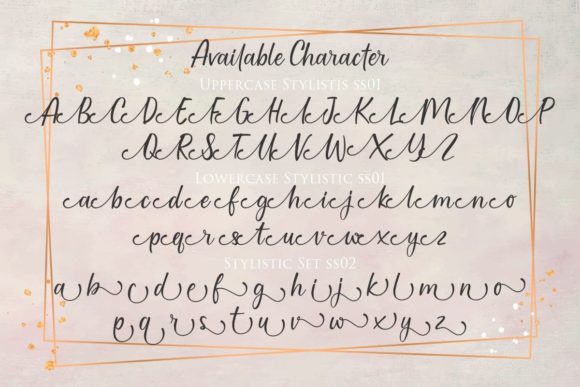 Available Character
Uppercase Stylistis ss01
A B C D E F G H I J K L M N O P
Q R S T U V W X Y Z
Lowercase Stylistic ss01
a b c d e f g h i j k l m n o
p q r s t u v w x y z
Stylistic Set ss02
a b c d e f g h i j k l m n o
p q r s t u v w x y z